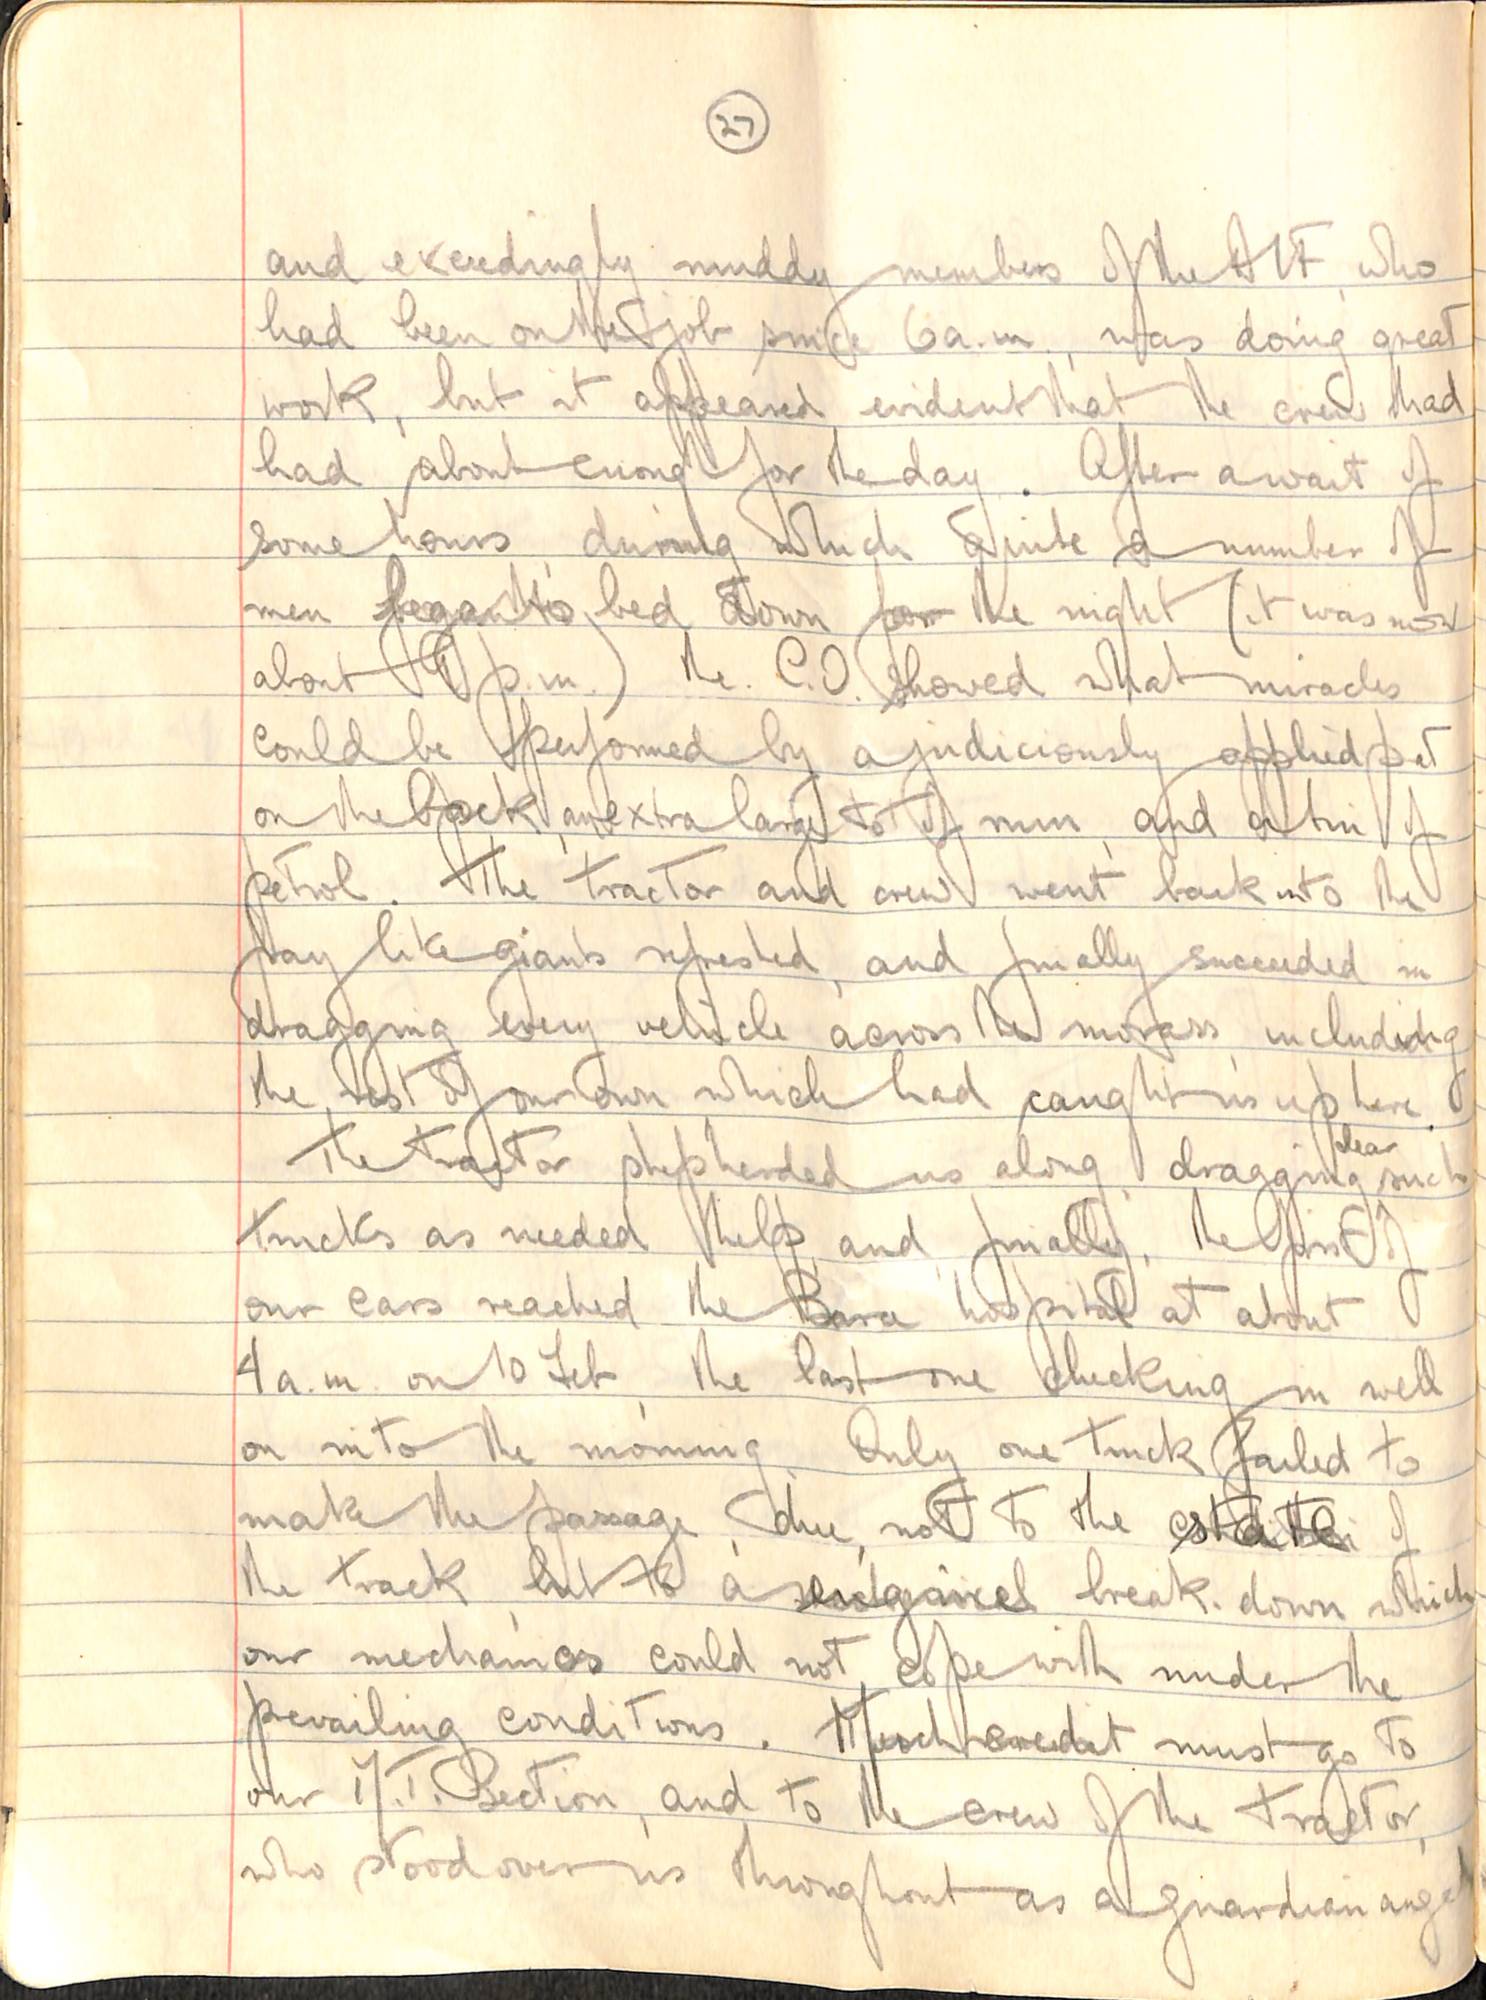 27
and exceedingly muddy members of the AIF, who
had been on the job since 6 a.m., was doing great
work, but it appeared evident that the crew had
had about enough for the day. After a wait of
some hours, during which quite a number of
men began to bed down for the night (it was now
about 9 p.m.) the C.O. showed what miracles
could be performed by a judiciously applied pat
on the back, an extra large tot of rum, and a tin of
petrol. The tractor and crew went back into the
fray like giants refreshed, and finally succeeded in
dragging every vehicle across the morass, including
the rest of our own which had caught us up here.
The tractor shepherded us along, dragging clear such
trucks as needed help, and, finally, the first of
our cars reached the Barce hospital at about
4 a.m. on 10 Feb, the last one checking in well
on into the morning. Only one truck failed to
make the passage, due, not to the state of
the track, but to a break-down which
our mechanics could not cope with under the
prevailing conditions. Much credit must go to
our M.T. Section, and to the crew of the tractor,
who stood over us throughout as a guardian angel